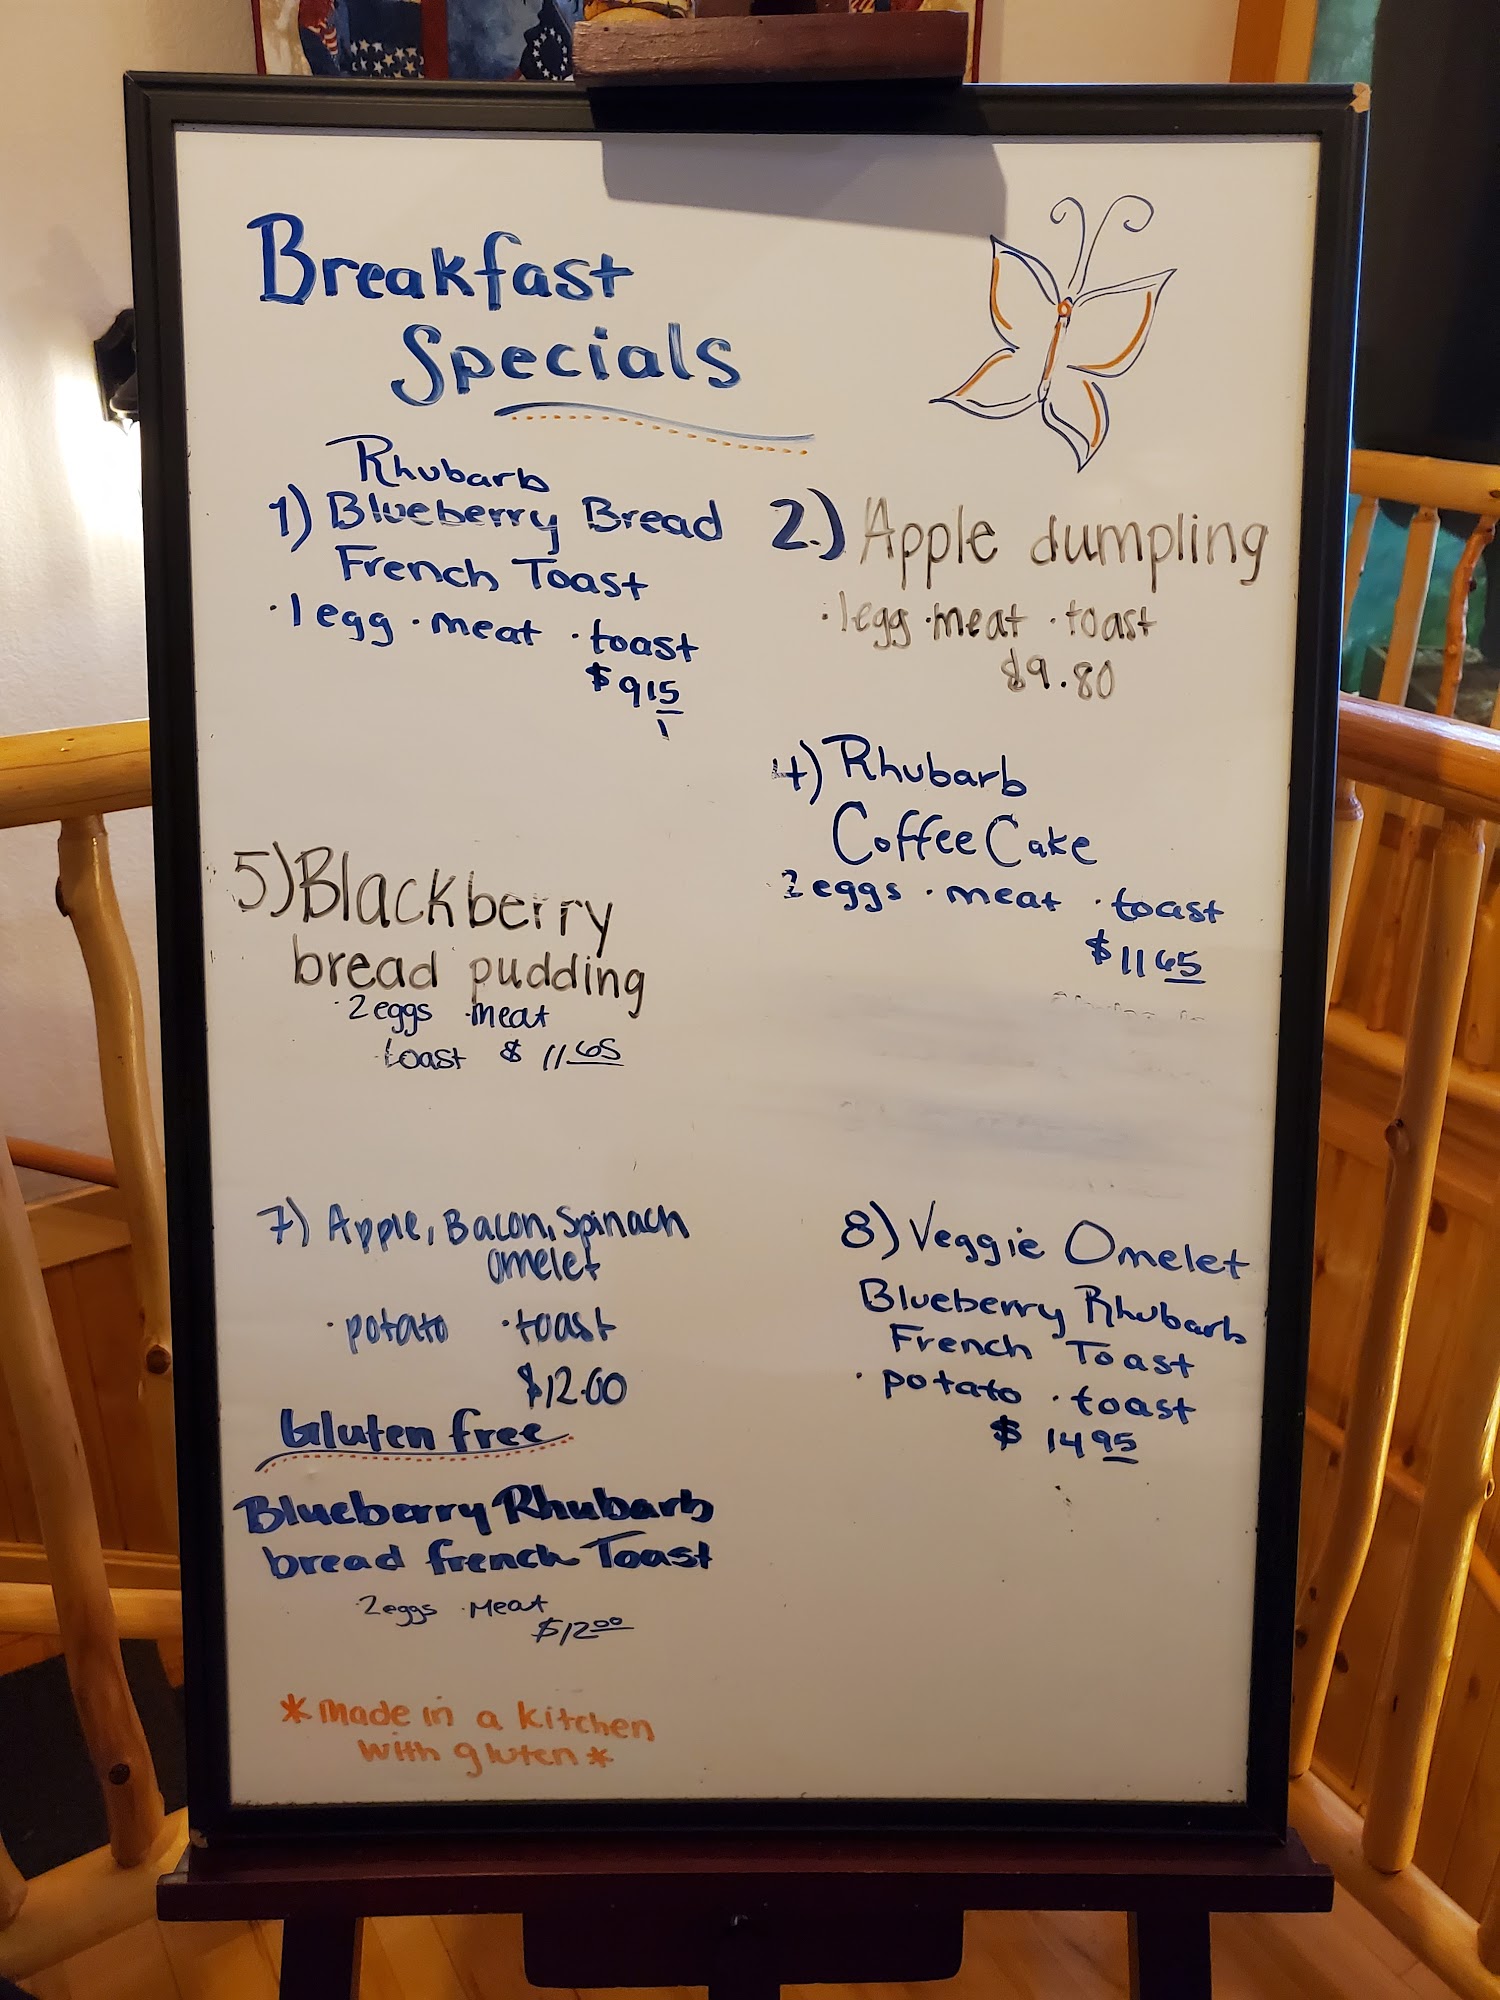 Breakfast
Specials
Rhubarb
1) Blueberry Bread
French Toast
·1 egg ·meat ·toast
$ 915
2.) Apple dumpling
·1egg ·meat ·toast
$9.80
4) Rhubarb
Coffee Cake
2 eggs ·meat ·toast
$1165
5) Blackberry
bread pudding
·2eggs ·meat
·toast $ 1165
7) Apple, Bacon, Spinach
omelet
·potato ·toast
$12.00
8) Veggie Omelet
Blueberry Rhubarb
French Toast
·potato ·toast
$ 1495
Gluten free
Blueberry Rhubarb
bread french Toast
·2eggs ·Meat
$1200
*Made in a kitchen
with gluten*